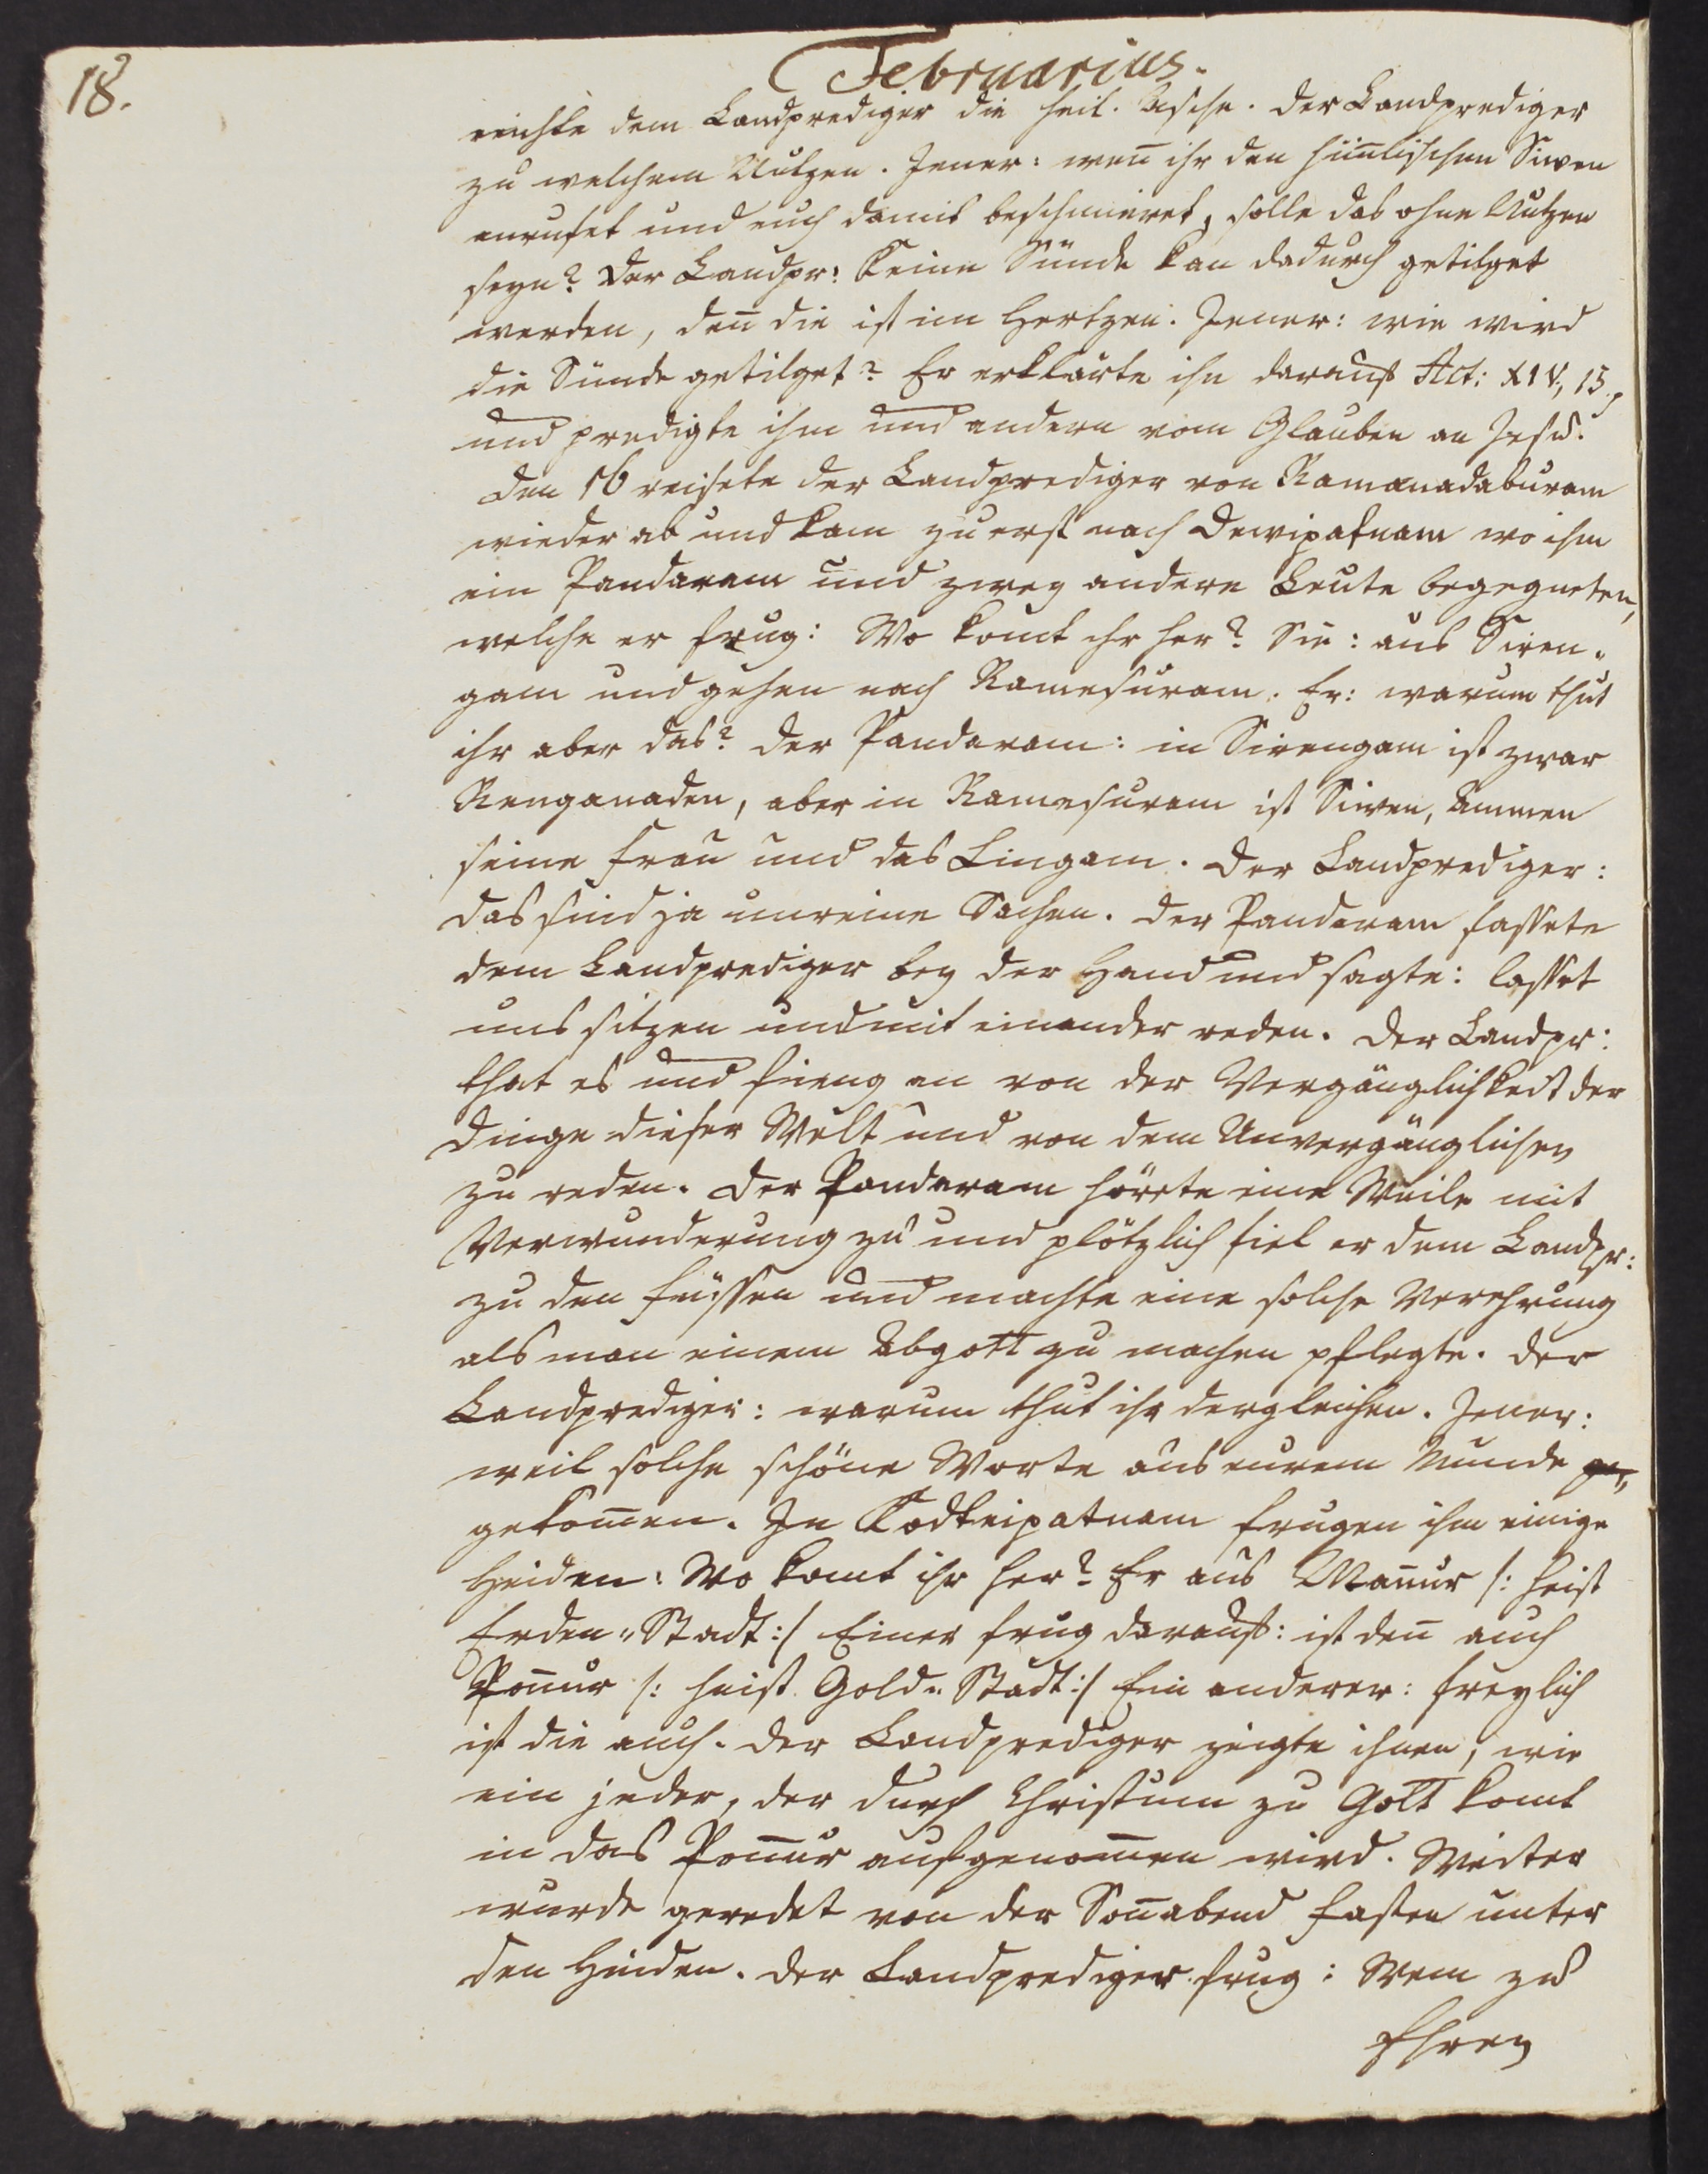 18.
Februarius.
reichte dem Landprediger die heil. Asche. Der Landprediger
zu welchem Nutzen. Jener: wen̄ ihr den him̄lischen Siwen
anrufet und euch damit beschmieret, solle das ohne Nutzen
seyn? Der Landpr: Keine Sünde kan dadurch getilget
werden, den̄ die ist im Hertzen. Jener: wie wird
die Sünde getilget? Er erklärte ihn darauf Act: XIV, 15,
und predigte ihm und andern vom Glauben an Jesu.
Den 16 reisete der Landprediger von Ramanadaburam
wieder ab und kam zuerst nach Dewipatnam wo ihm
ein Pandaram und zwey andere Leute begegneten,
welche er frug: Wo komt ihr her? Sie: aus Siren„
gam und gehen nach Ramesuram. Er: warum thut
ihr aber das? Der Pandaram: in Sirengam ist zwar
Renganaden, aber in Ramesuram ist Siwen, Ammen
seine Frau und das Lingam. Der Landprediger:
das sind ja unreine Sachen. Der Pandaram fassete
dem Landprediger bey der Hand und sagte: lasset
uns sitzen und mit einander reden. Der Landpr:
that es und fieng an von der Vergänglichkeit der
Dinge dieser Welt und von dem Unvergänglichen
zu reden. Der Pandaram hörete eine Weile mit
Verwunderung zu und plötzlich fiel er dem Landpr:
zu den Füssen und machte eine solche Verehrung
als man einem Abgott zu machen pflegte. Der
Landprediger: warum thut ihr dergleichen. Jener:
weil solche schöne Worte aus eurem Munde ge„
gekom̄en. In Kodteipatnam frugen ihm einige
Heiden: Wo komt ihr her? Er aus Man̄ur /: heist
Erden„Stadt:/ Einer frug darauf: ist den̄ auch
Pon̄ur /: heist Gold„Stadt:/ Ein anderer: freylich
ist die auch. Der Landprediger zeigte ihnen, wie
ein jeder, der durch Christum zu Gott komt
in das Pon̄ur aufgenom̄en wird. Weiter
wurde geredet von der Son̄abend Fasten unter
den Heiden. Der Landprediger frug: Wem zu
Ehren